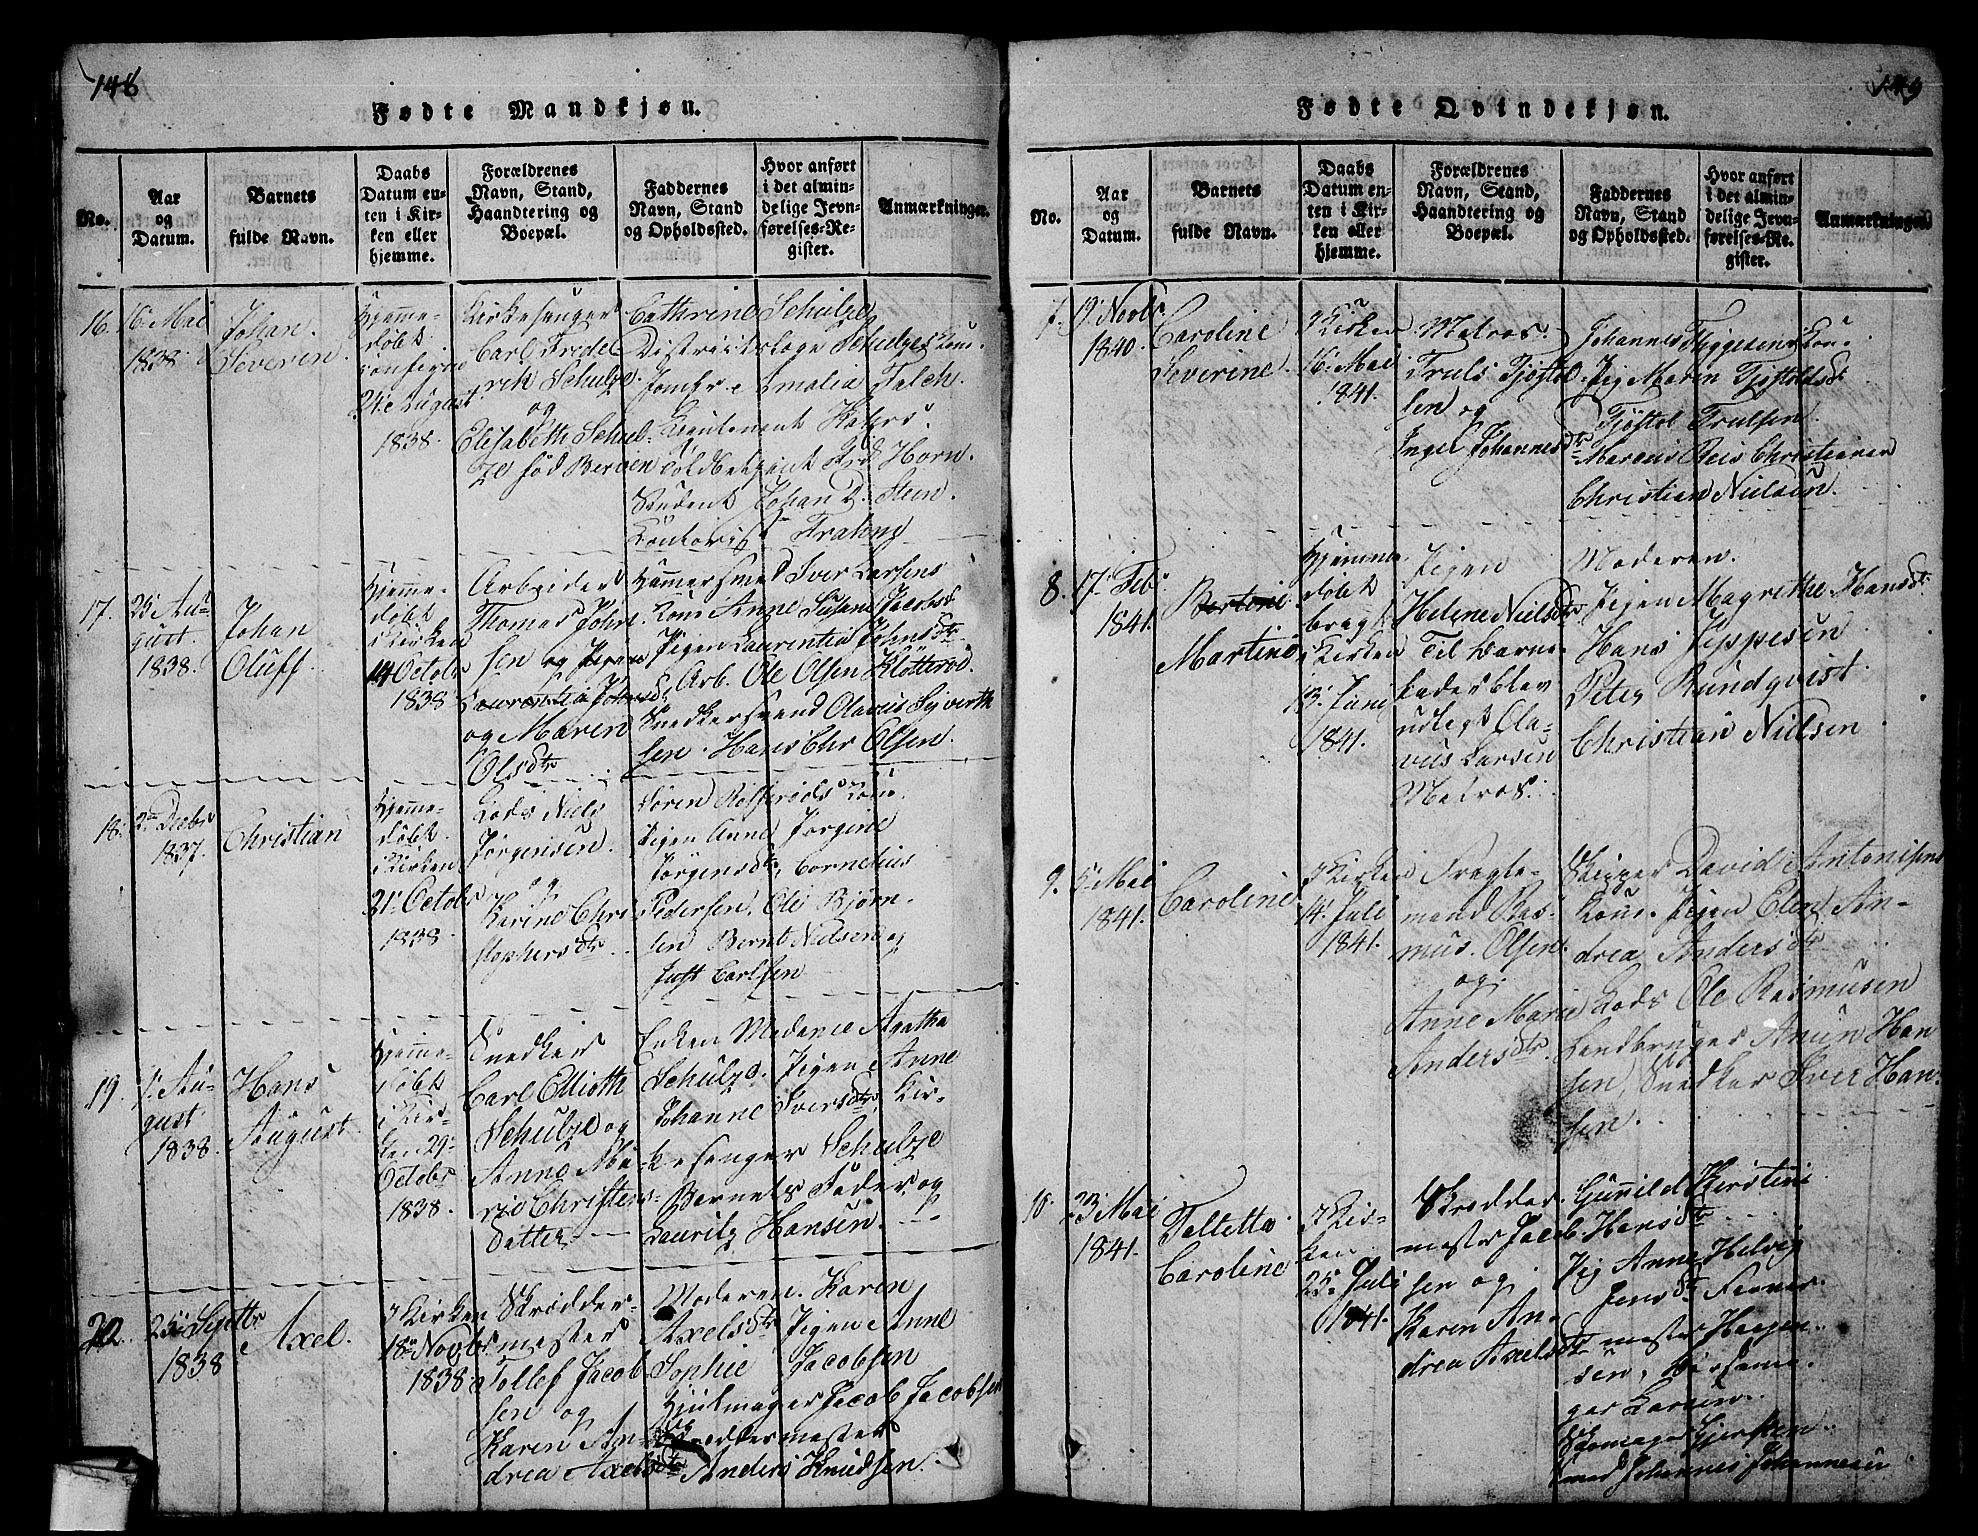 148
Fødte Mandkjøn.
No.
Aar
og
Datum.
Barnets
fulde Navn.
Daabs
Datum en-
ten i Kir-
ken eller
hjemme.
Forældrenes
Navn, Stand,
Haandtering og
Boepæl.
Faddernes
Navn, Stand
og Opholdssted.
Hvor anført
i det almin-
delige Jevn-
førelses-Re-
gister.
Anmærkninger.
16.
16 Mai
1838.
Johan
Severin
Hjemme-
døbt
24de August
1838.
Kirkesanger
Carl Frede
rik Schulze
og
Elisabeth Schul-
ze fød Berven
Cathrine Schulze
Schulzes Kone
Jomfrue Amalia Falch.
Lieutenant
Horn.
Student Johan D. Steen.
Contorist
17.
25 Au-
gust.
1838.
Johan
Oluff.
Hjemme-
døbt
i Kirken
14 Octobr
1838
Arbeider
Thomas John
sen og Pigen
Laurentia Johnsd
og Maren
Olsdtr
Hammersmed Iver Larsens
Kone Anne Susane Jacobsd
Pigen Laurentia Johnsdtr
Arb. Ole Olsen
Snedkersvend Olavus Syverth
sen. Hans Chr Olsen.
18.
2den Decbr
1837.
Christian
Hjemme-
døbt.
i Kirken
21 Octobr
1838.
Lods Niels
Jørgensen.
og
Karine Chri
stophersdtr
Søren Kone.
Pigen Anne Jørgine
Jørgensdtr, Cornelius
Pedersen, Ole Bjørn-
sen Bernt Nielsen og
Just Carlsen
19.
1 Au-
gust
1838.
Hans
August.
Hjemme-
døbt
i Kir-
ken 29
Octobr
1838.
Snedker
Carl Ellioth
Schulze og
Anne Ma-
rie Christens-
Datter
Enken Madame Agatha
Schulze. Pigen Anne
Johanne Iversdtr, Kir-
kesanger Schulze
Barnets Fader og
Lauritz Hansen.
20.
25 Septbr
1838
Axel.
I Kirken
18de Novbr
1838
Skrædder-
mester
Tollef Jacob
sen og
Karen An-
drea Axelsdtr
Moderen. Karen
Axelsdtr Pigen Anne
Sophie Jacobsen
Hjulmager Jacob Jacobsen
og Skreddermester
Anders Knudsen.
149
Fødte Qvindekjøn.
No.
Aar
og
Datum.
Barnets
fulde Navn.
Daabs
Datum en-
ten i Kir-
ken eller
hjemme.
Forældrenes
Navn, Stand,
Haandtering og
Boepæl.
Faddernes
Navn, Stand
og Opholdssted.
Hvor anført
i det almin-
delige Jevn-
førelses-Re-
gister.
Anmærkninger.
7.
9 Novbr
1840.
Caroline
Severine
I Kirken
16 Mai
1841.
Matros.
Truls Tjøstol
sen og
Inger Johannesdtr
Johannes Tryggesens Kone
Pig Maren Tjøstolsdtr
Tjøstol Trulsen.
Marcus Reis Christiansen
Christian Nielsen.
8.
17 Feb.
1841.
Bertine
Martine
Hjemme
døbt
bragt
i Kirken
13 Juni
1841.
Pigen
Helene Nielsdtr
Til Barne-
fader blev
udlagt Ola-
vus Larsen
Matros.
Moderen.
Pigen Magrethe Hansdtr.
Hans Jeppesen
Peter Rundqvist
Christian Nielsen
9.
5 Mai
1841.
Caroline
I Kirken
14 Juli
1841.
Fragte-
mand Ras-
mus Olsen.
og.
Anne Marie
Andersdtr.
Skipper David Antonisens
Kone. Pigen Elen An-
drea Andersdtr
Lods Ole Rasmusen
Landbruger Amun Han
sen, Snedker Iver Han-
sen.
10.
23 Mai
1841.
Tolletta
Caroline
I Kir-
ken
25 Juli
1841.
Skredder
mester Jacob
sen og
Karen An-
drea Axelsdtr
Gunild Kirstine
Hansdtr
Pig Anne Helvig
Jensdtr Farver
mester Haagen-
sen,
ger Larsen.
med Johannes Johannesen